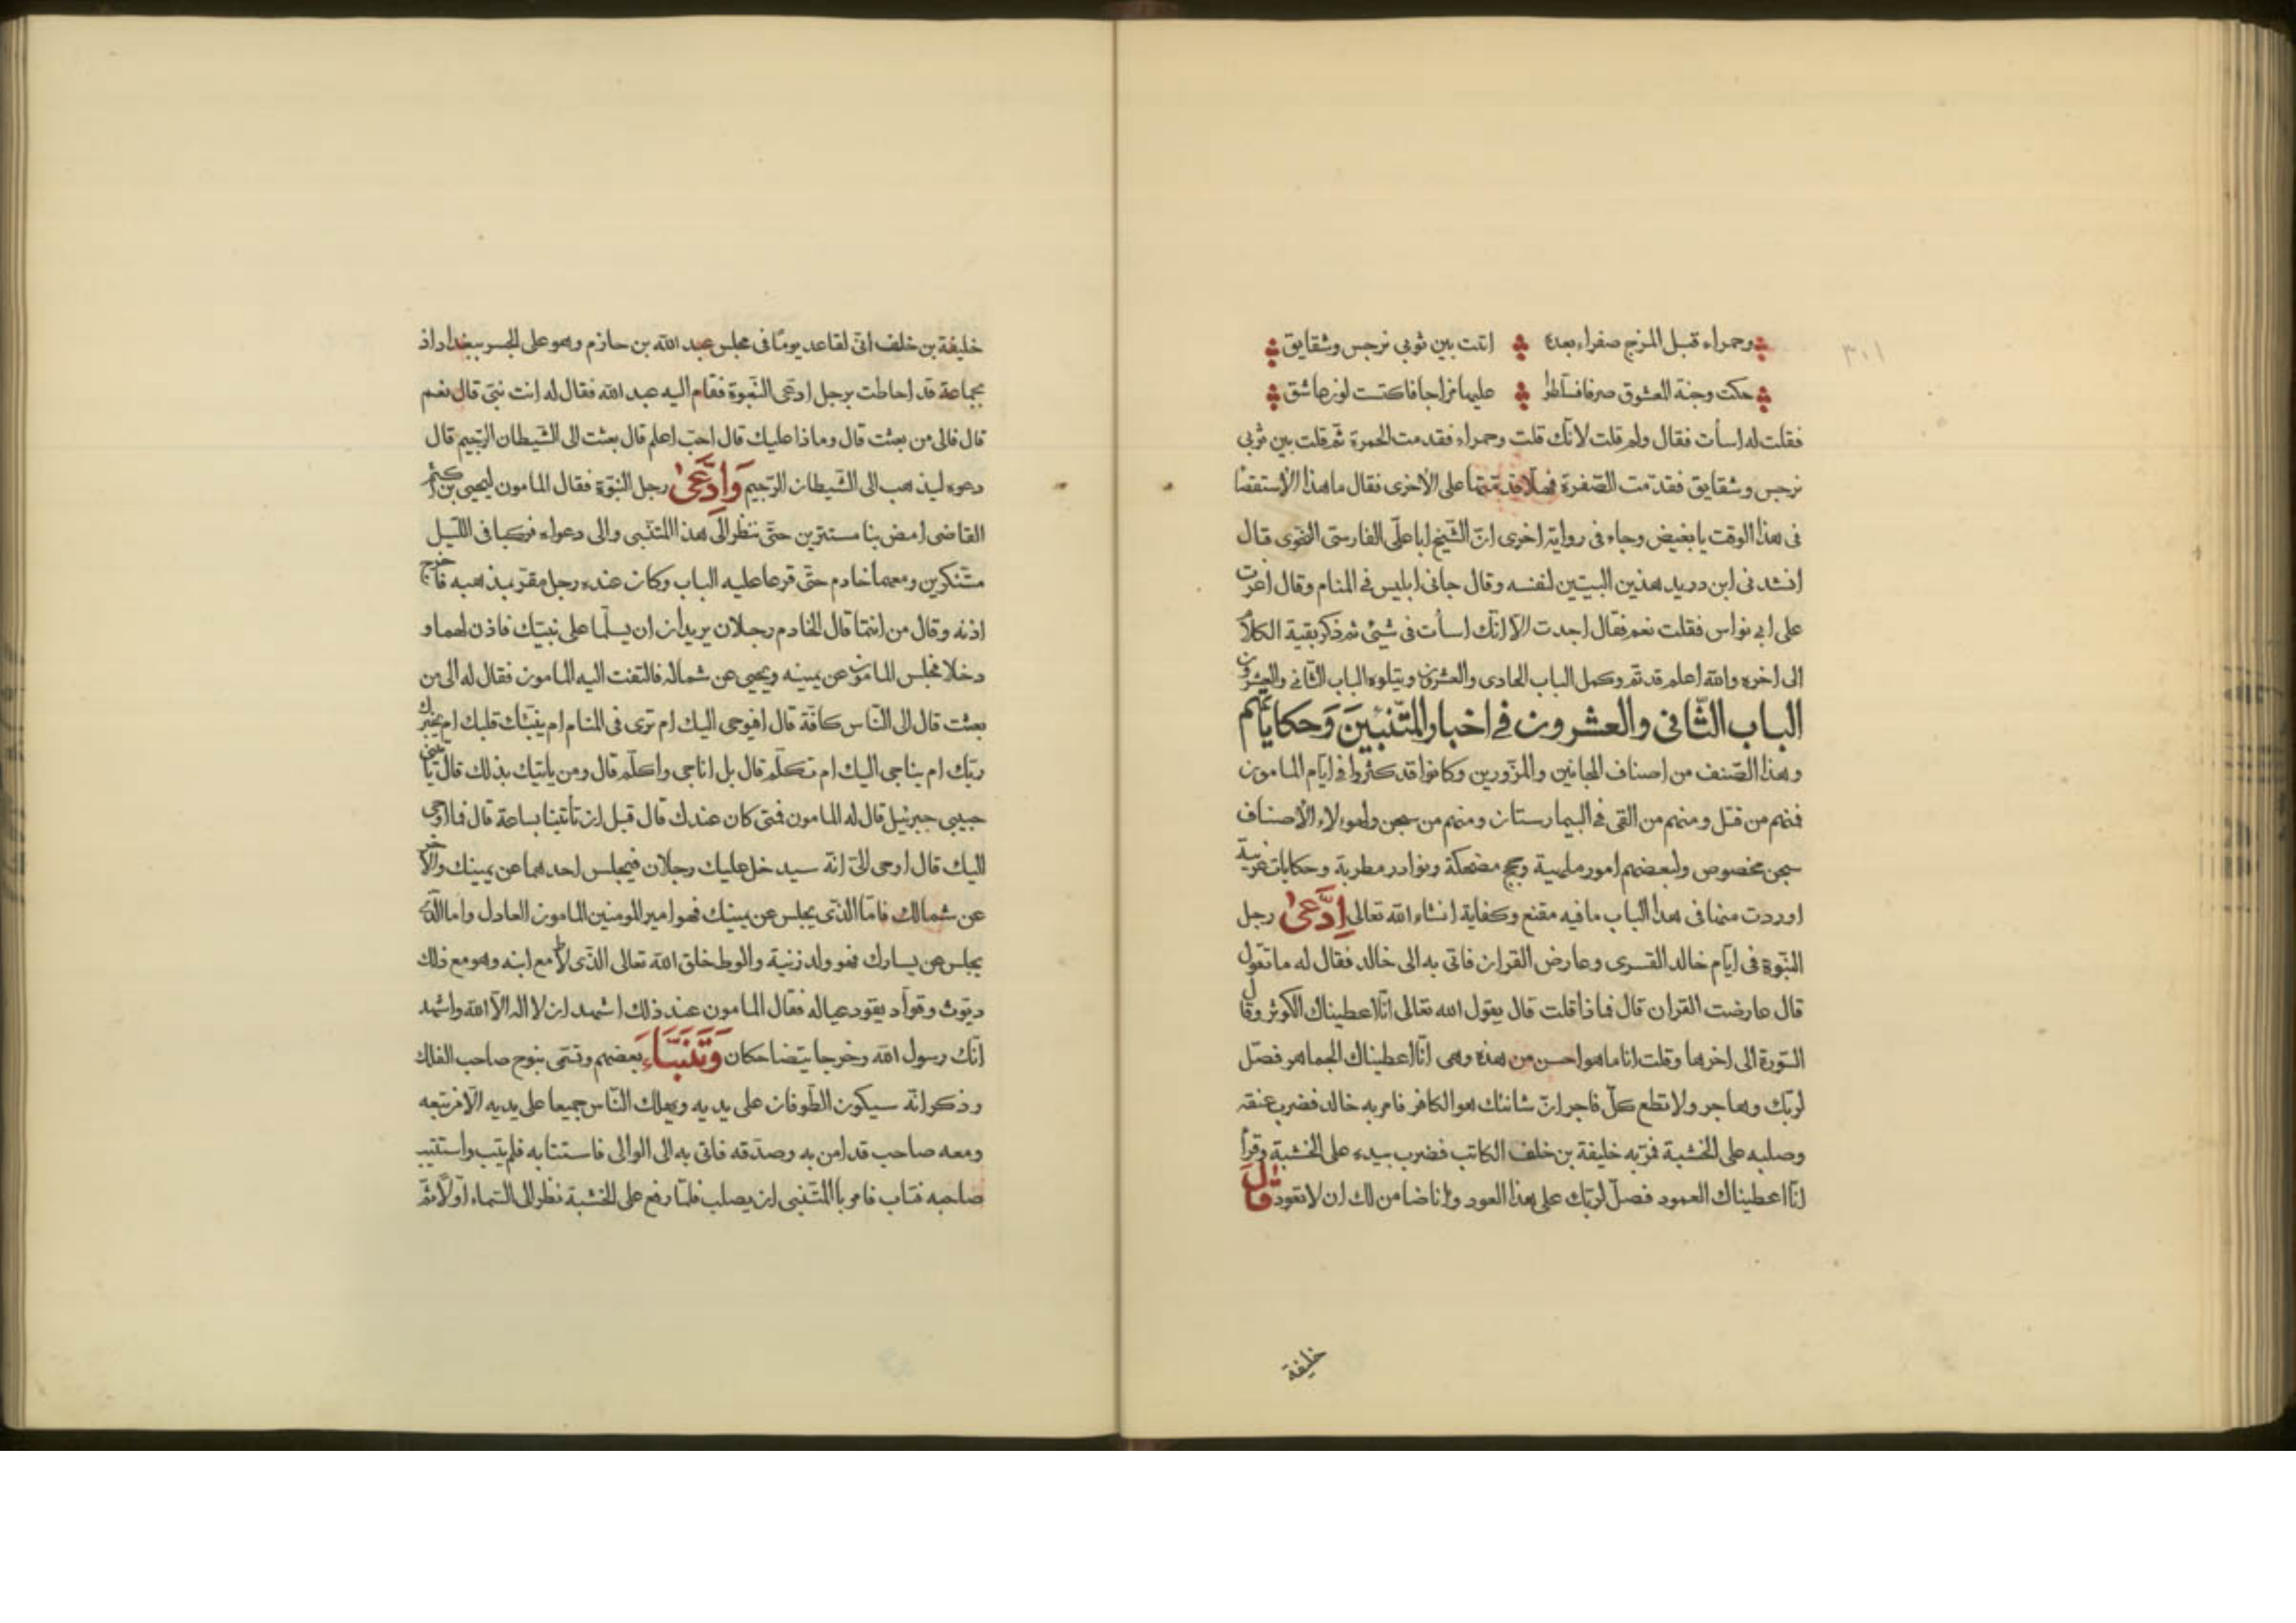 ٣٠١
وحمراء قبل المزج صفراء بعده اتت بين ثوبى نرجس وشقايق
حكت وجنة المعشوق صرفا فسلطوا عليها مزاجا فاكتست لون عاشق
فقلت له اسأت فقال ولم قلت لانّك قلت وحمراء فقدمت الحمرة ثم قلت بين ثوبى
نرجس وشقايق فقدّمت الصّفرة فهلّا قدّمتها على الأخرى فقال ما هذا الأستقصا
فى هذا الوقت يا بغيض وجاء فى رواية اخرى انّ الشّيخ ابا علّى الفارسىّ النحوى قال
انشدنى ابن دريد هذين البيتين لنفسه وقال جانى ابليس فى المنام وقال اغرت
على ابى نواس فقلت نعم فقال اجدت الّا انّك اسأت فى شيئ ثم ذكر بقية الكلام
الى اخره والله اعلم قد تم وكمل الباب الحادى والعشرون ويتلوه الباب الثّانى والعشرون
الباب الثّانى والعشرون فى اخبار المتنبّيين وحكاياتهم
وهذا الصّنف من اصناف المجانين والمزوّرين وكانوا قد كثروا فى ايّام المامون
فمنهم من قتل ومنهم من القى فى البيمارستان ومنهم من سجن ولهولاء الأصناف
سجن مخصوص ولبعضهم امور ملهية وحجج مضحكة ونوادر مطربة وحكايات غريبة
اوردت منها فى هذا الباب ما فيه مقنع وكفاية انشاء الله تعالى ادّعى رجل
النبّوة فى ايّام خالد القسرى وعارض القران فاتى به الى خالد فقال له ما تقول
قال عارضت القران قال فماذا قلت قال يقول الله تعالى انّا اعطيناك الكوثر وقال
السّورة الى اخرها وقلت انا ما هو احسن من هذه وهى انّا اعطيناك الجماهر فصّل
لربّك وهاجر ولا تطع كلّ فاجر انّ شانئك هو الكافر فامر به خالد فضرب عنقه
وصلبه على الخشبة فمرّ به خليفة بن خلف الكاتب فضرب بيده على الخشبة وقرأ
انّا اعطيناك العمود فصلّ لربّك على هذا العود وانا ضامن لك ان لا تعود قال
خليفة
خليفة بن خلف انّى لقاعد يومًا فى مجلس عبد الله بن حازم وهو على الجسر ببغداد اذ
بجماعة قد احاطت برجل ادّعى النّبوة فقام اليه عبد الله فقال له انت نبىّ قال نعم
قال فالى من بعثت قال وماذا عليك قال احبّ اعلم قال بعثت الى الشّيطان الرّجيم قال
دعوه ليذهب الى الشّيطان الرّجيم وادّعى رجل النبّوة فقال المامون ليحيى بن اكثم
القاضى امض بنا مستترين حتّى ننظر الى هذا المتنبّى والى دعواه فركبا فى اللّيل
متنكرين ومعهما خادم حتّى قرعا عليه الباب وكان عنده رجل مقرّ بمذهبه فاخرج
اذنه وقال من انتما قال الخادم رجلان يريدان ان يسلّما على نبيّك فاذن لهما و
دخلا فجلس المامون عن يمينه ويحيى عن شماله فالتفت اليه المامون فقال له الى من
بعثت قال الى النّاس كافّة قال افيوحى اليك ام ترى فى المنام ام ينبّئك قلبك ام يخبرك
ربّك ام يناجى اليك ام تكلّم قال بل اناجى واكلّم قال ومن ياتيك بذلك قال يأتينى
حبيبى جبرئيل قال له المامون فمتى كان عندك قال قبل ان تأتينا بساعة قال فما اوحى
اليك قال اوحى الىّ انّه سيدخل عليك رجلان فيجلس احدهما عن يمينك والآخر
عن شمالك فامّا الذّى يجلس عن يمينك فهو امير المومنين المامون العادل واما الّذى
يجلس عن يسارك فهو ولد زنية والوط خلق الله تعالى الذّى لاط مع ابنه وهو مع ذلك
ديّوث وقوّاد يقود عياله فقال المامون عند ذلك اشهد ان لا اله الاّ الله واشهد
انّك رسول الله وخرجا يتضاحكان وتنبّاء بعضهم وتسمّى بنوح صاحب الفلك
وذكر انّه سيكون الطّوفان على يديه ويهلك النّاس جميعا على يديه الّا من تبعه
ومعه صاحب قد امن به وصدّقه فاتى به الى الوالى فاستتابه فلم يتب واستتيب
صاحبه فتاب فامر بالمتنبّى ان يصلب فلمّا رفع على الخشبة نظر الى السّماء اولّا ثمّ